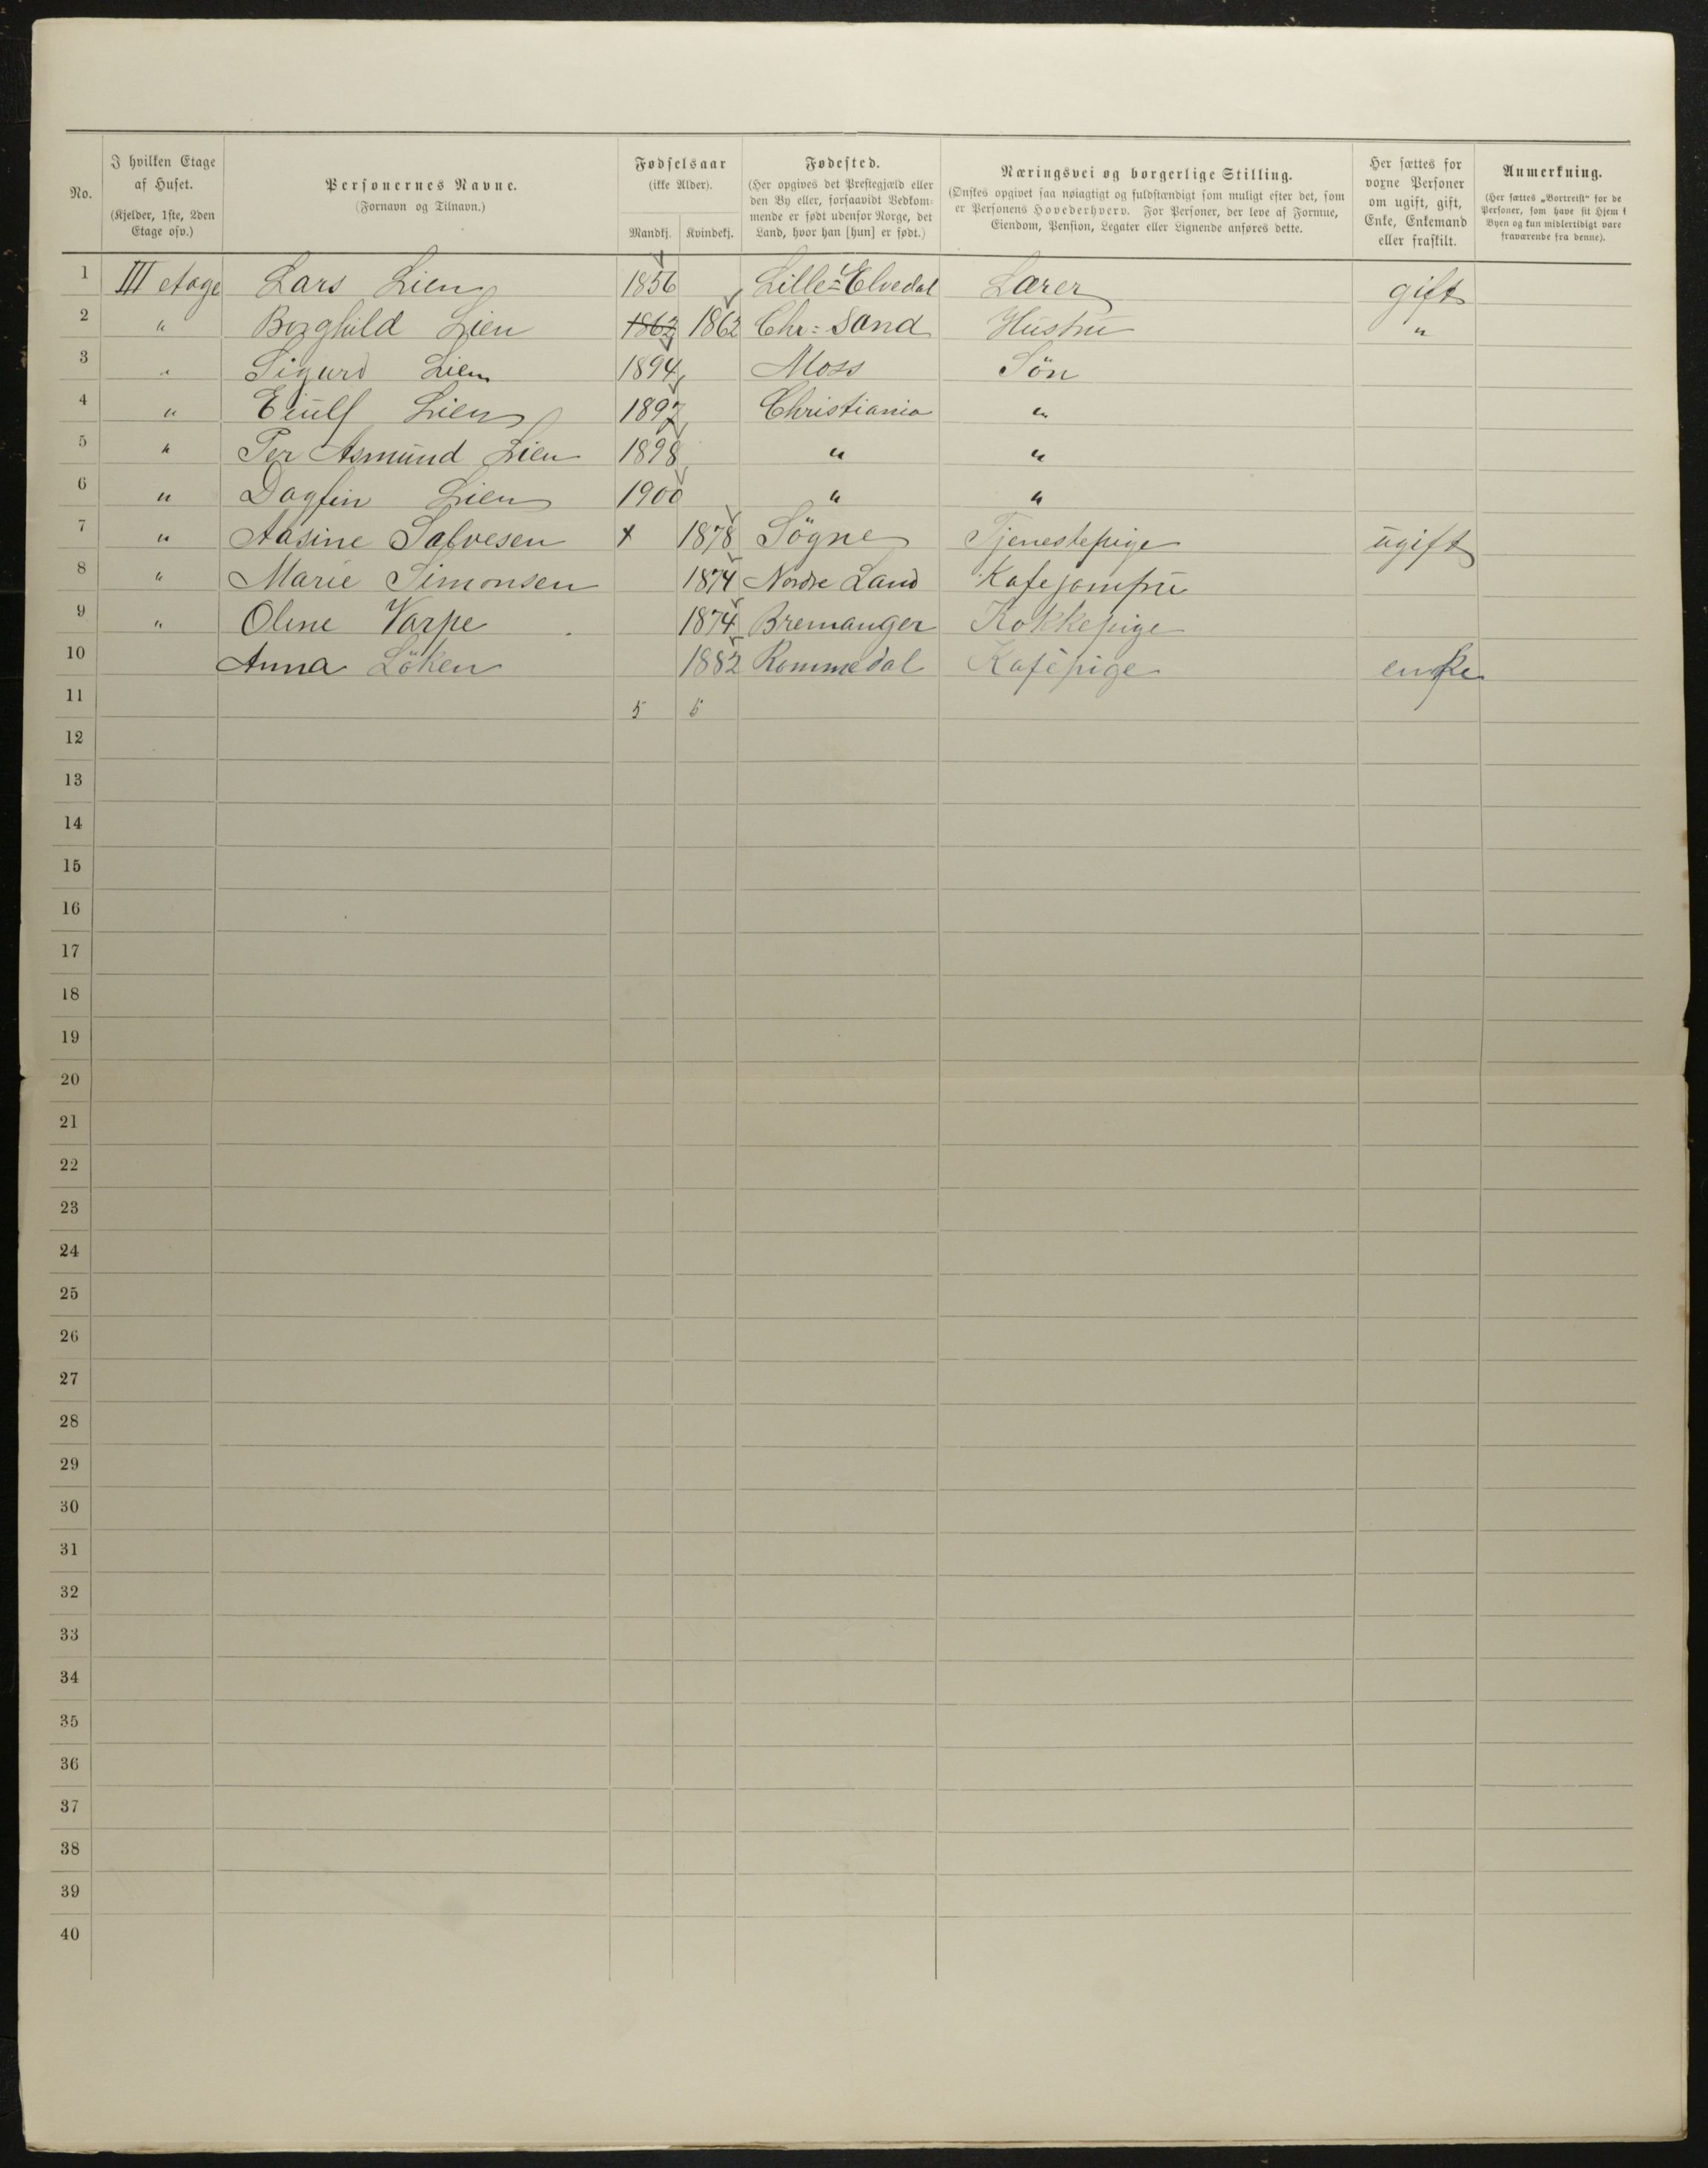 No.
I hvilken Etage
af Huset.
(Kjelder, 1ste, 2den
Etage osv.)
Personernes Navne.
(Fornavn og Tilnavn.)
Fødselsaar
(ikke Alder).
Mandkj. Kvindekj.
Fødested.
(Her opgives det Prestegjæld eller
den By eller, forsaavidt Vedkom-
mende er født udenfor Norge, det
Land, hvor han [hun] er født.)
Næringsvei og borgerlige Stilling.
(Ønskes opgivet saa nøiagtigt og fuldstændigt som muligt efter det, som
er Personens Hovederhverv. For Personer, der leve af Formue,
Eiendom, Pension, Legater eller Lignende anføres dette.
Her sættes for
voxne Personer
om ugift, gift,
Enke, Enkemand
eller fraskilt.
Anmerkning.
(Her sættes „Bortreist“ for de
Personer, som have sit Hjem i
Byen og kun midlertidigt vare
fraværende fra denne).
1 III etage Lars Lien 1856 Lille-Elvedal Lærer gift
2 " Borghild Lien 1862 1862 Chr: Sand Hustru "
3 " Sigurd Lien 1894 Moss Sön
4 " Eiulf Lien 1897 Christiania "
5 " Per Asmund Lien 1898 " "
6 " Dagfin Lien 1900 " "
7 " Aasine Salvesen x 1878 Sögne Tjenestepige ugift
8 " Marie Simonsen 1874 Nordre Land Kafejomfru
9 " Oline Varpe 1874 Bremanger Kokkepige
10 Anna Löken 1882 Rommedal Kafépige enke
11 5 5
12
13
14
15
16
17
18
19
20
21
22
23
24
25
26
27
28
29
30
31
32
33
34
35
36
37
38
39
40